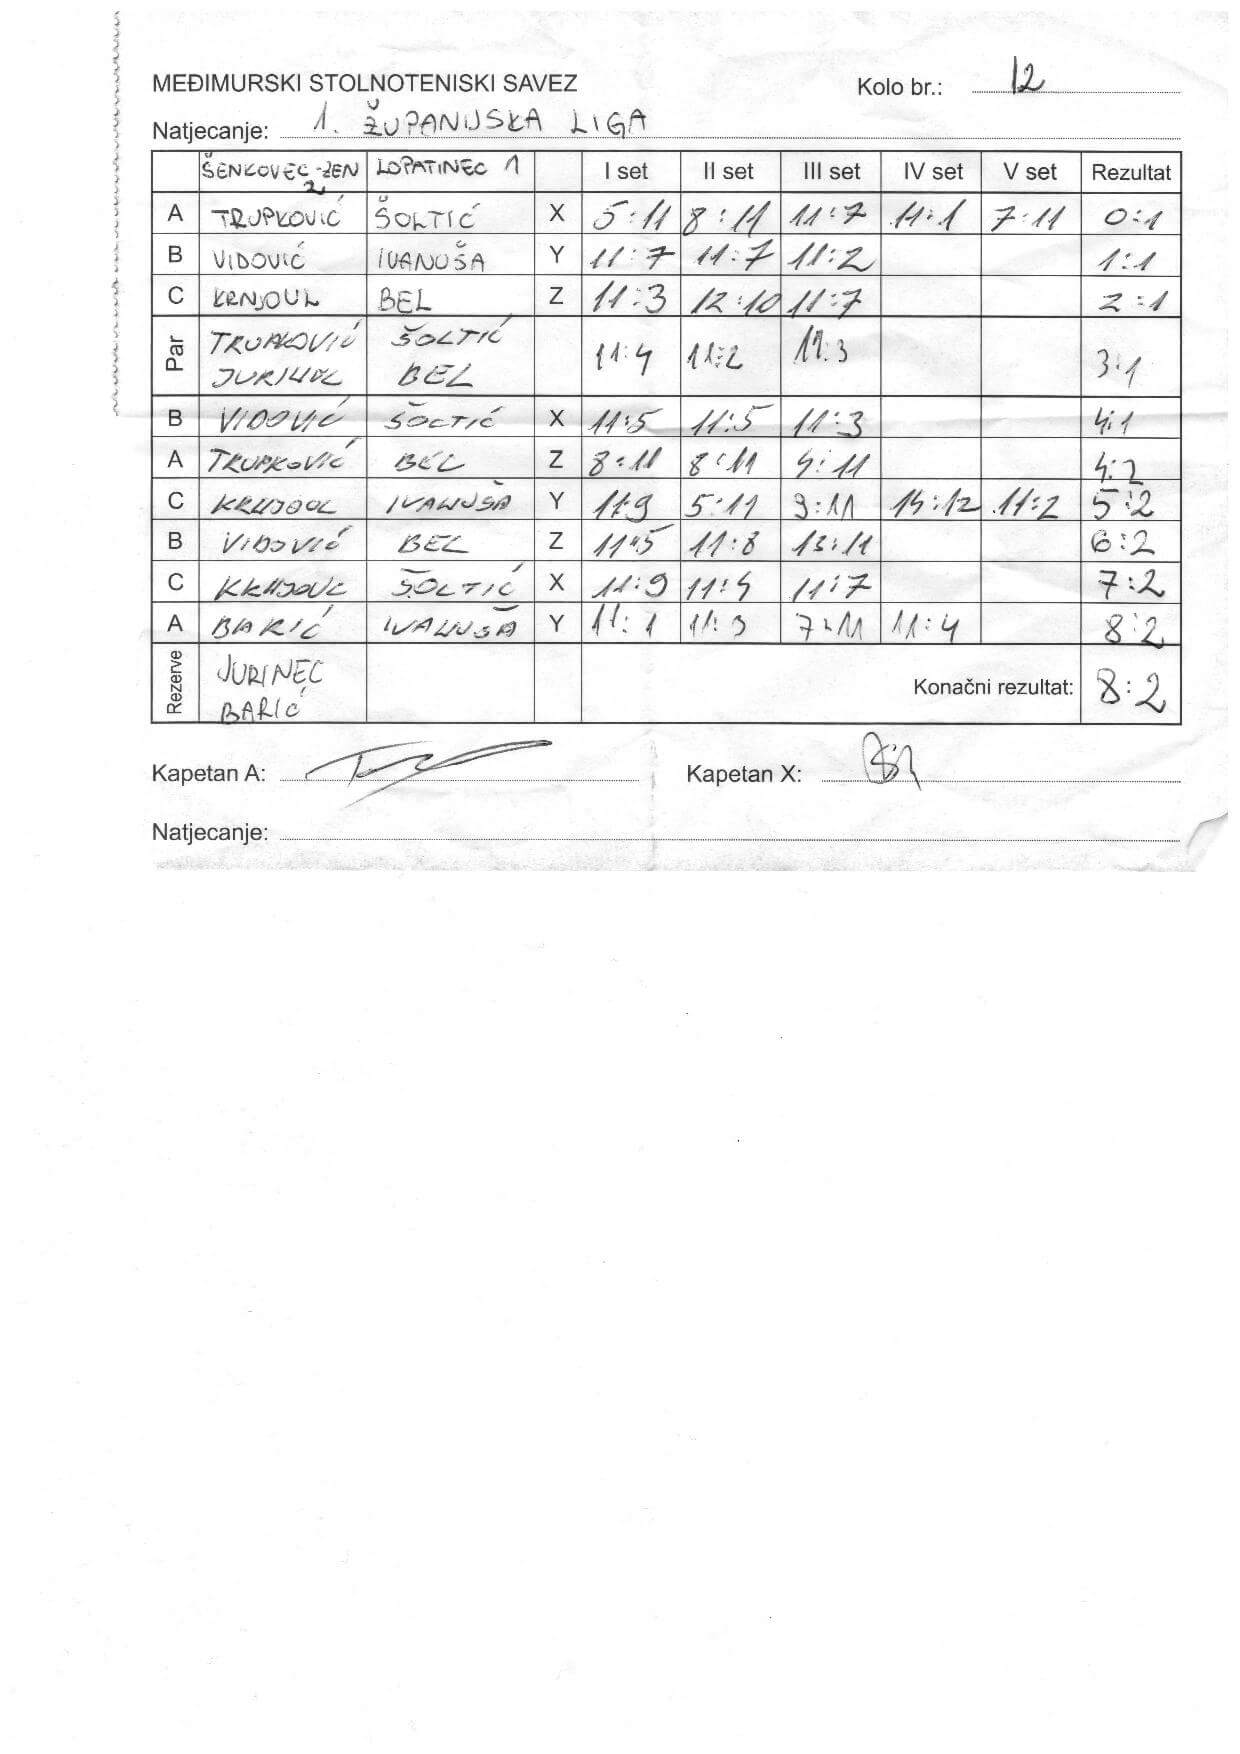 MEĐIMURSKI STOLNOTENISKI SAVEZ
Kolo br.: 12
Natjecanje: 1. ŽUPANIJSKA LIGA
ŠENKOVEC-ŽEN 2 LOPATINEC 1 I set II set III set IV set V set Rezultat
A TRUPKOVIĆ ŠOLTIĆ X 5:11 8:11 11:7 11:1 7:11 0:1
B VIDOVIĆ IVANUŠA Y 11:7 11:7 11:2 1:1
C BEL Z 11:3 12:10 11:7 2:1
Par TRUPKOVIĆ ŠOLTIĆ 11:4 11:2 11:3 3:1
BEL
B VIDOVIĆ ŠOLTIĆ X 11:5 11:5 11:3 4:1
A TRUPKOVIĆ BEL Z 8:11 8:11 4:11 4:2
C IVANUŠA Y 11:9 5:11 9:11 14:12 11:2 5:2
B VIDOVIĆ BEL Z 11:5 11:8 13:11 6:2
C ŠOLTIĆ X 11:9 11:4 11:7 7:2
A BARIĆ IVANUŠA Y 11:1 11:3 7:11 11:4 8:2
Rezerve JURINEC
BARIĆ
Konačni rezultat: 8:2
Kapetan A:
Kapetan X:
Natjecanje: